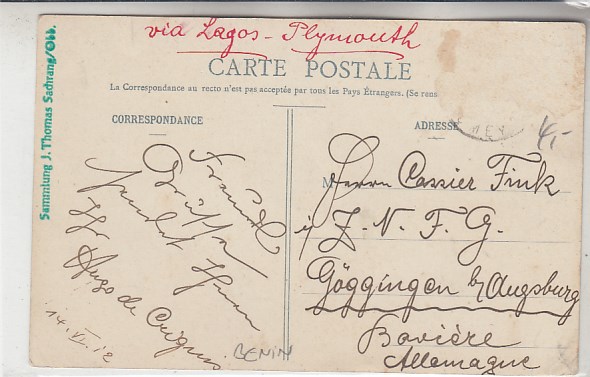 via Lagos - Plymouth
CARTE POSTALE
La Correspondance au recto n'est pas acceptée par tous les Pays Étrangers. (Se rens
CORRESPONDANCE
ADRESSE
Sammlung J. Thomas Sachrang/Obb.
4,-
Freundl
Grüsse
sendet Ihnen
Ihr
Hugo de
14. VI. 12
BENIN
Herrn Cassier Fink
Z. N. F. G.
Göggingen b/ Augsburg
Bavière
Allemagne